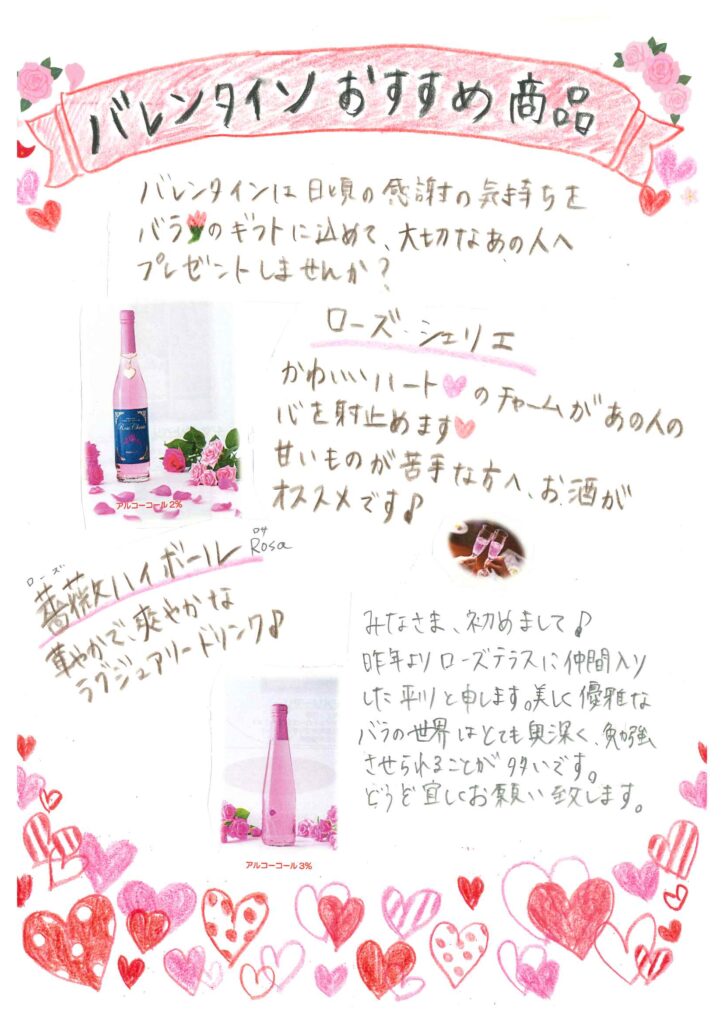 バレンタイン おすすめ 商品
バレンタインは 日頃の 感謝の 気持ちを
バラのギフトに込めて、大切なあの人へ
プレゼントしませんか？
ローズ・シェリエ
かわいいハートのチャームが あの人の
心を射止めます
甘いものが苦手な方へ、お酒が
オススメです♪
Rose Cherie
アルコーコール 2%
ローズ
薔薇ハイボール
ロサ
Rosa
華やかで、爽やかな
ラグジュアリードリンク♪
みなさま、初めまして♪
昨年よりローズテラスに仲間入り
した平川と申します。美しく優雅な
バラの世界はとても奥深く、勉強
させられることが多いです。
どうぞ宜しくお願い致します。
アルコーコール 3%